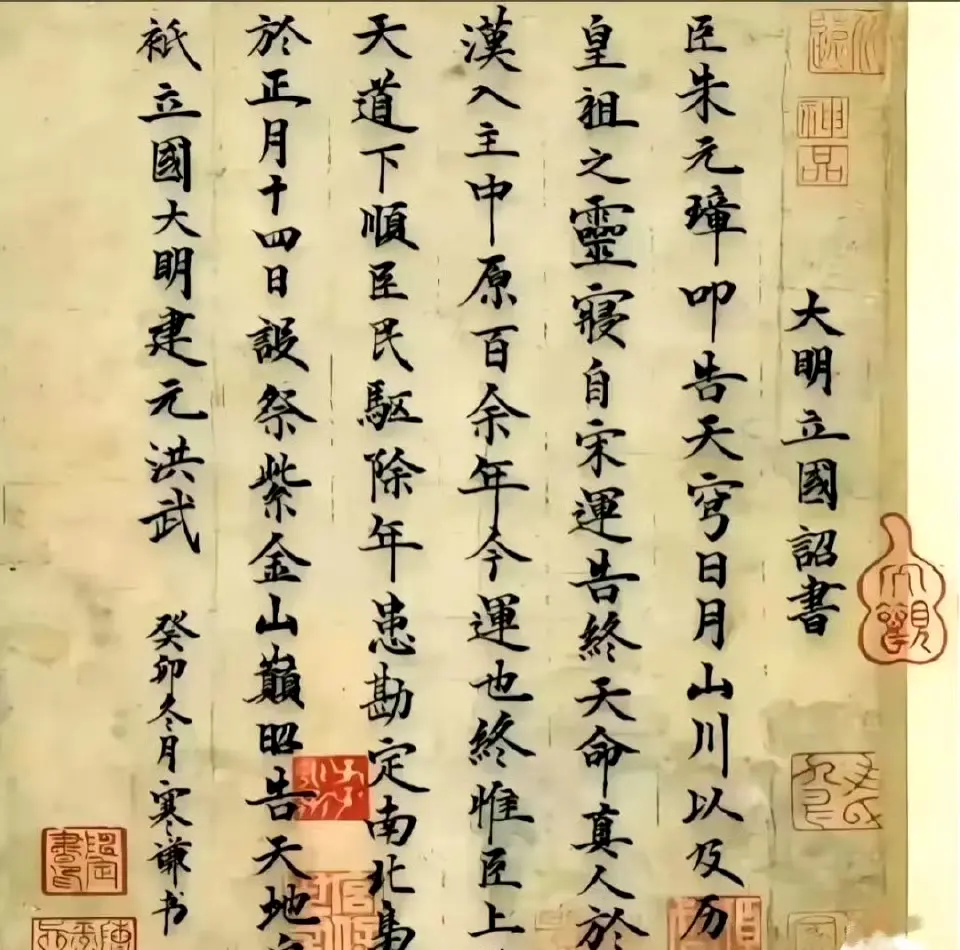 大明立國詔書
臣朱元璋叩告天穹日月山川以及历
皇祖之靈寢自宋運告終天命真人於
漢入主中原百余年今運也終惟臣上
天道下順臣民驅除年患勘定南北
於正月十四日設祭紫金山巔昭告天地
祇立國大明建元洪武
癸卯冬月寒谦书
神品
大觀